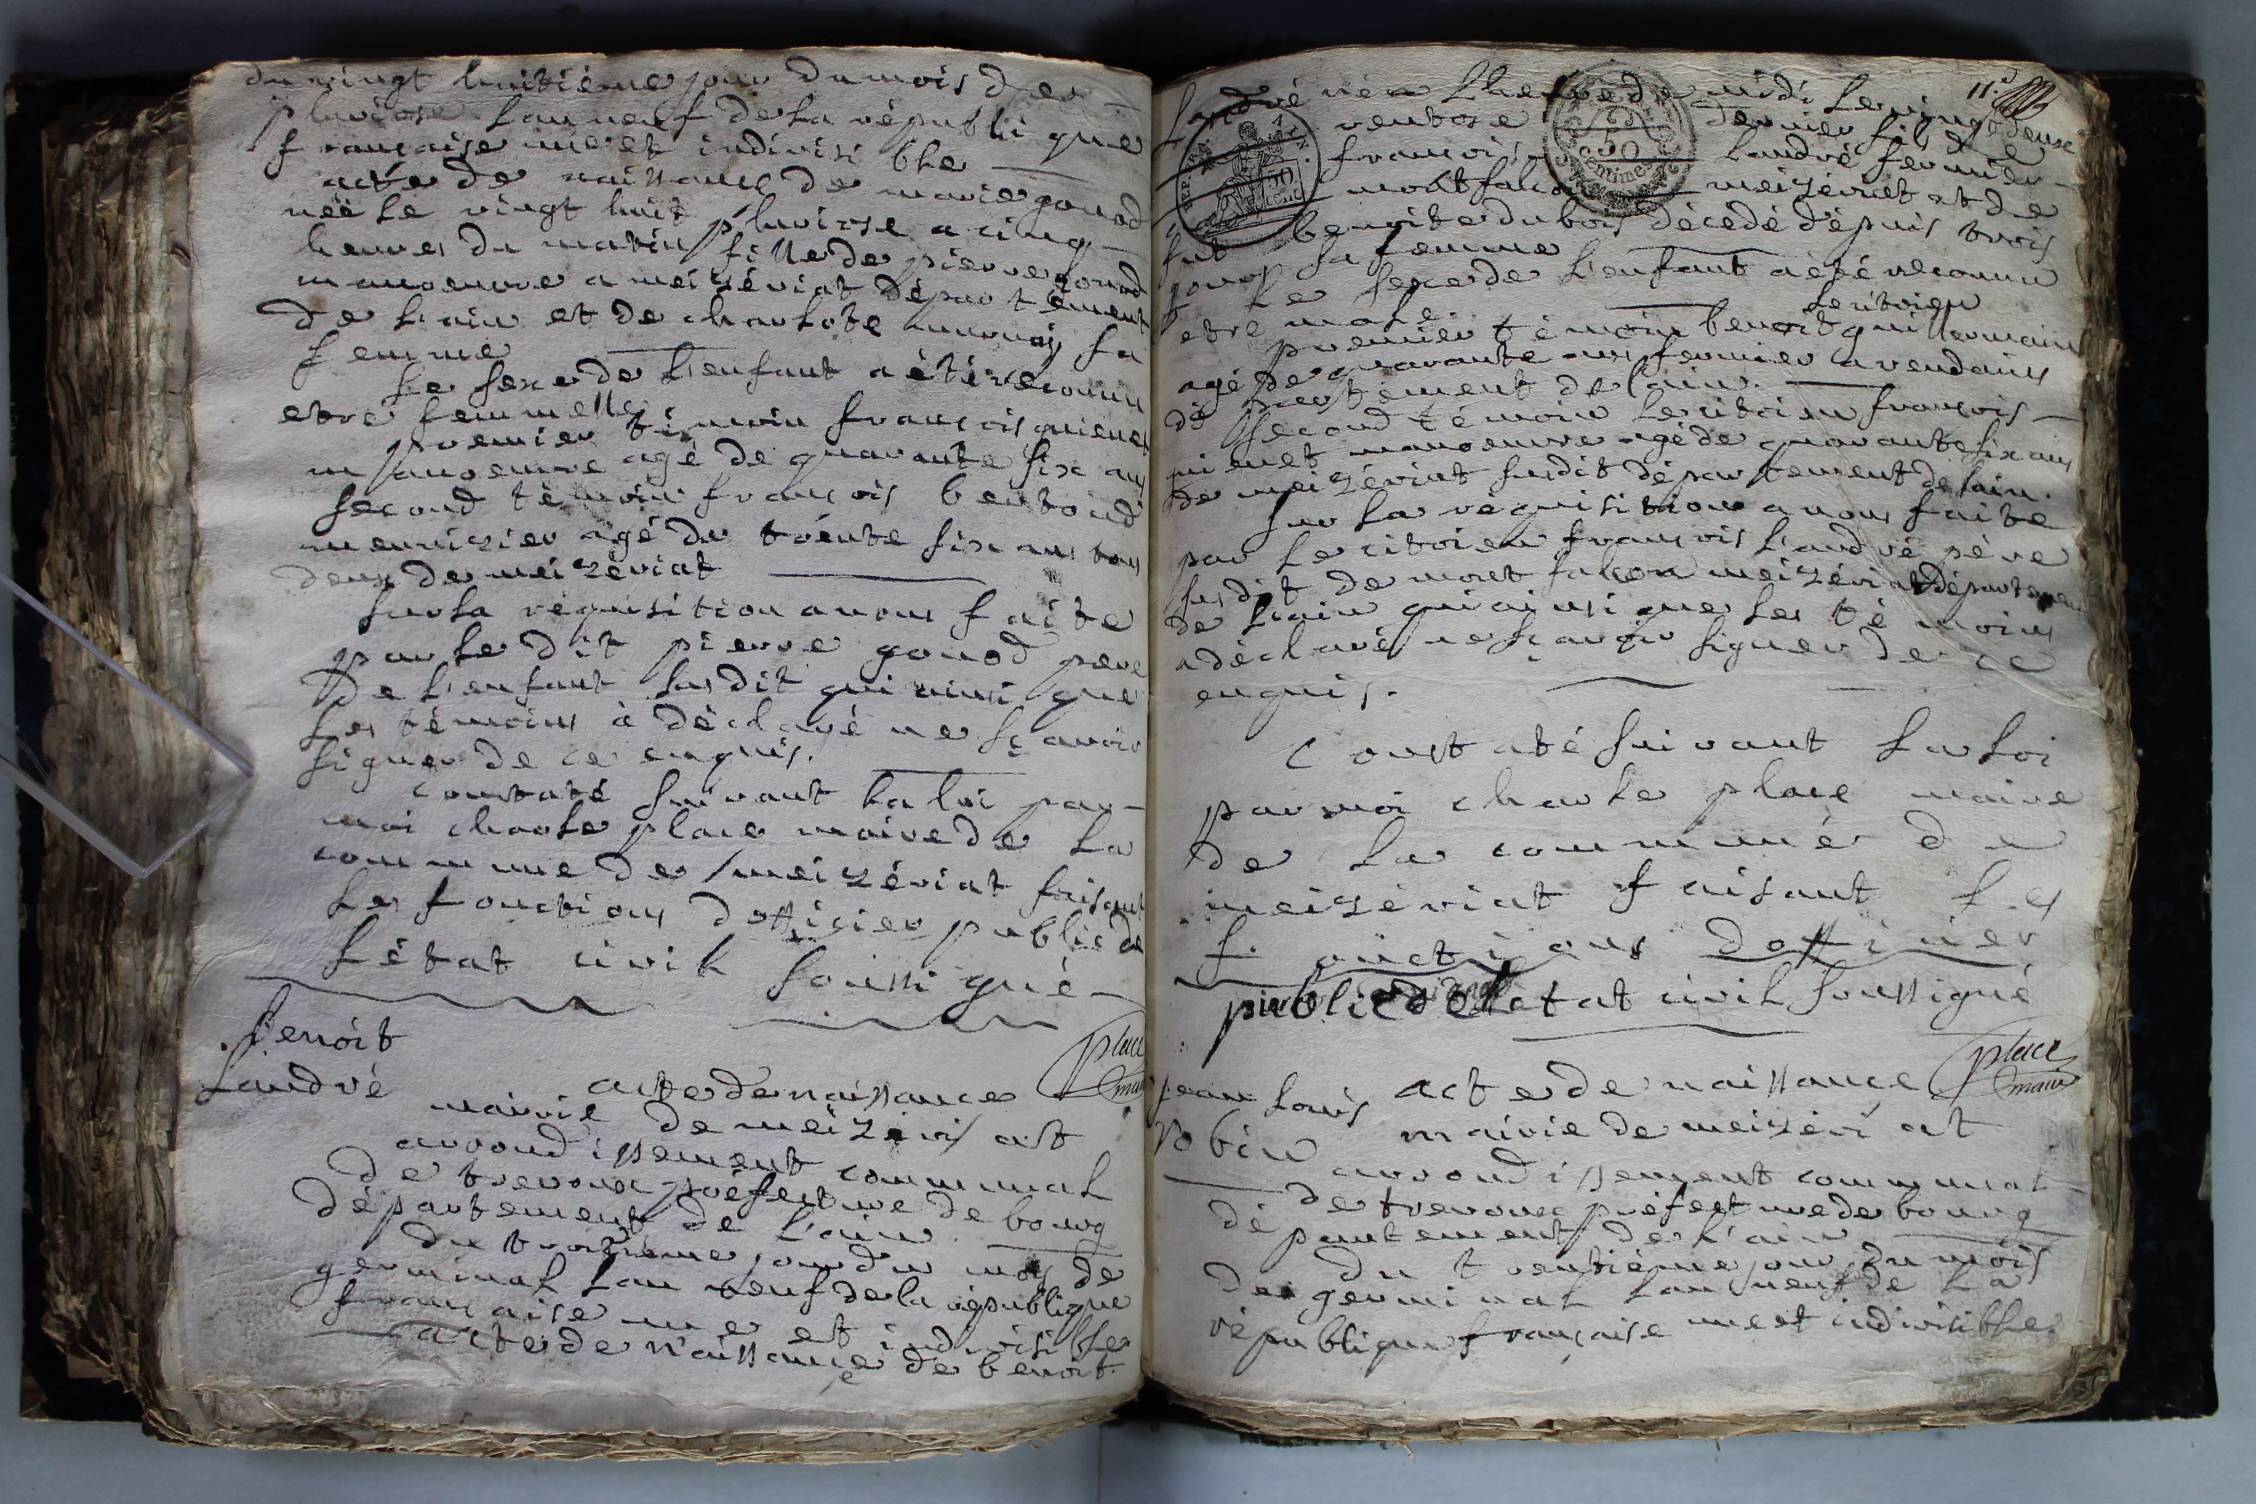 du vingt huitième jour du mois de
pluviose l'an neuf de la république
française une et indivisi ble
acte de naissance de marie gonod
née le vingt huit pluviose a cinq
heures du matin fille de pierre gonod
manoeuvre a meizériat département
de l'ain et de charlote sa
femme
le sexe de l'enfant a été reconnu
etre femmelle
premier témoin françois quienet
manoeuvre agé de quarante six ans
second témoin françois bertond
menuizier agé de trente six ans tous
deux de meizériat
sur la réquisition a nous faite
par le dit pierre gonod pere
de l'enfant susdit qui ainsi que
les témoins à déclaré ne sçavoir
signer de ce enquis.
constaté suivant la loi par
moi charle place maire de la
commune de meizériat faisant
les fonctions dofficier public de
l'état civil soussigné
place
maire
benoit
Landré
acte de naissance
mairie de meizériat
arrondissement communal
de trevoux préfecture de bourg
département de l'ain
du troizieme jour du mois de
germinal l'an neuf de la république
française une et indivisible
acte de naissance de benoit
11.e
Landré né a l'heure de midi le vingt deuxe
ventose dernier fils de
françois landré fermier
montfalcon meizériat et de
fut benoite dubois décédé dépuis trois
jours sa femme
le sexe de l'enfant a été reconnu
etre male.
le citoien
premier témoin benoit guillermain
agé de quarante ans fermier a vendains
département de l'ain.
second témoin le citoien françois
quienet manoeuvre agé de quarante six ans
de meizériat susdit département de lain.
sur la réquisition a nous faite
par le citoien françois landré pére
susdit de montfalcon meizériat département
de l'ain qui ainsi que les témoins
a déclaré ne sçavoir signer de ce
enquis.
constaté suivant la loi
par moi charle place maire
de la commune de
meizériat faisant les
fonctions dofficier
public de l'etat civil soussigné
place
maire
jean louis
robin
acte de naissance
mairie de meizériat
arrondissement communal
de trevoux préfecture de bourg
département de l'ain
du trentiéme jour du mois
de germinal l'an neuf de la
république française une et indivisible.
50
centimes
REP. FRA.
50
CENT